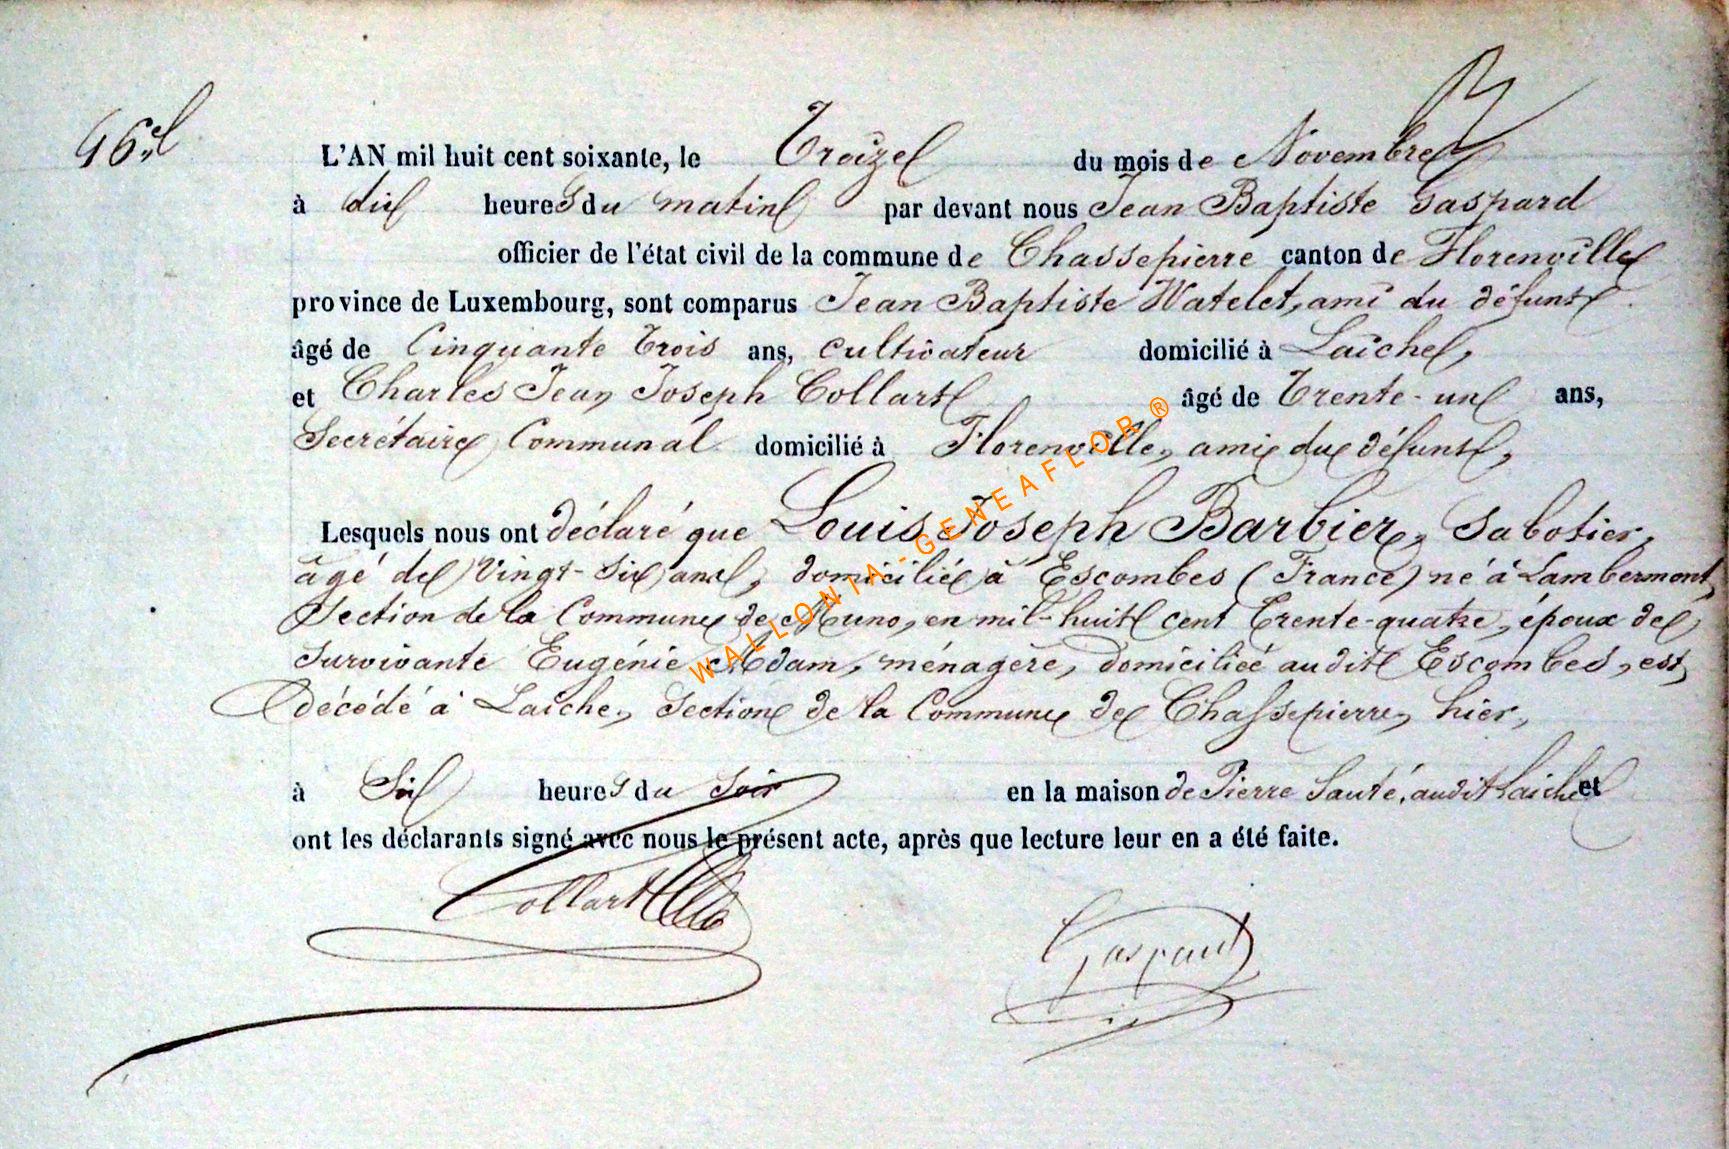 46.e
L'AN mil huit cent soixante, le Treize du mois de Novembre
à dix heures du matin par devant nous Jean Baptiste Gaspard
officier de l'état civil de la commune de Chassepierre canton de Florenville
province de Luxembourg, sont comparus Jean Baptiste Watelet, ami du défunt
âgé de Cinquante Trois ans, cultivateur domicilié à Laiche,
et Charles Jean Joseph Collart âgé de Trente-un ans,
Secrétaire Communal domicilié à Florenville, ami du défunt,
Lesquels nous ont déclaré que Louis Joseph Barbier, Sabotier,
âgé de Vingt-six ans, domicilié à Escombes (France) né à Lambermont,
Section de la Commune de Muno, en mil-huit cent Trente-quatre, époux de
survivante Eugénie Adam, ménagère, domiciliée audit Escombes, est
décédé à Laiche, Section de la Commune de Chassepierre, hier,
à Six heures du Soir en la maison de Pierre Sauté, audit Laiche et
ont les déclarants signé avec nous le présent acte, après que lecture leur en a été faite.
Collart
Gaspard
WALLONIA-GENEAFLOR®